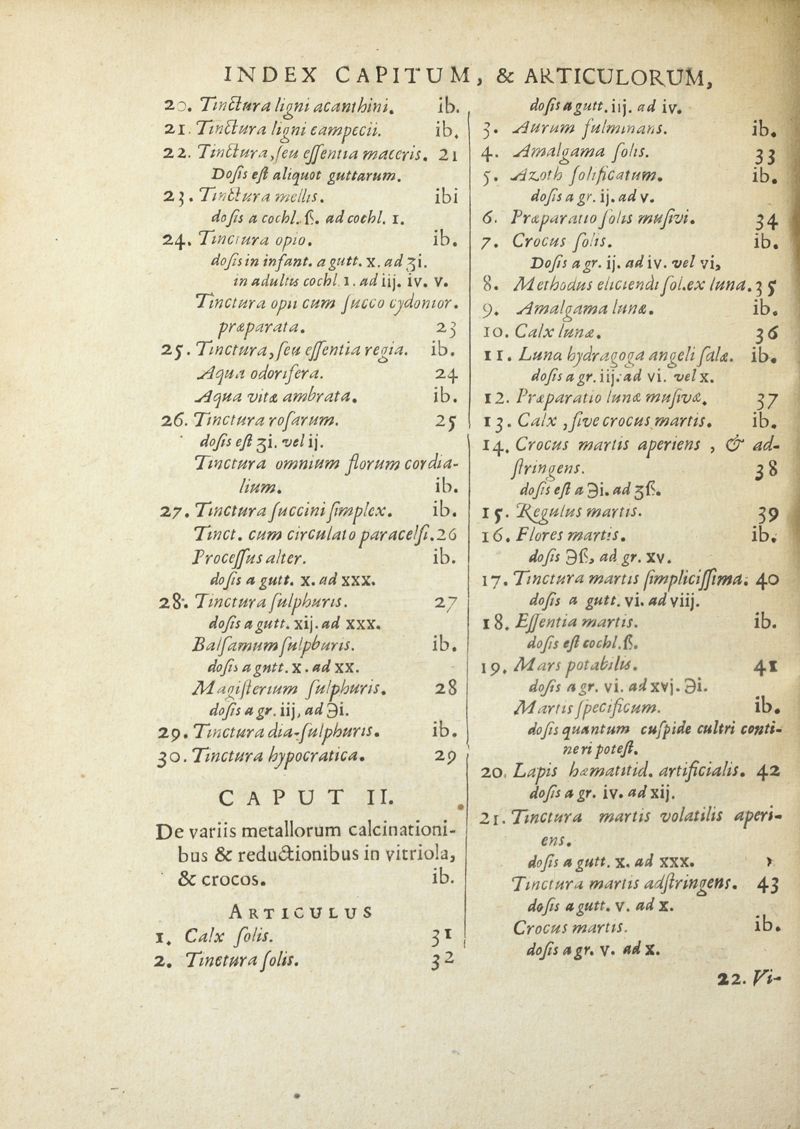 INDEX CAPITUM, & ARTICULORUM,
20. Tinctura ligni acanthini. ib.
21. Tinctura ligni campecii. ib.
22. Tinctura, ſeu eſſentia maceris. 21
Doſis eſt aliquot guttarum.
23. Tinctura mellis. ibi
doſis a cochl. ß. ad cochl. 1.
24. Tinctura opio. ib.
doſis in infant. a gutt. x. ad ʒi.
in adultis cochl. 1. ad iij. iv. v.
Tinctura opii cum ſucco cydonior.
præparata. 23
25. Tinctura, ſeu eſſentia regia. ib.
Aqua odorifera. 24
Aqua vitæ ambrata. ib.
26. Tinctura roſarum. 25
doſis eſt ʒi. vel ij.
Tinctura omnium florum cordia-
lium. ib.
27. Tinctura ſuccini ſimplex. ib.
Tinct. cum circulato paracelſi. 26
Proceſſus alter. ib.
doſis a gutt. x. ad xxx.
28. Tinctura ſulphuris. 27
doſis a gutt. xij. ad xxx.
Balſamum ſulphuris. ib.
doſis a gutt. x. ad xx.
Magiſterium ſulphuris. 28
doſis a gr. iij, ad ℈i.
29. Tinctura dia-ſulphuris. ib.
30. Tinctura hypocratica. 29
CAPUT II.
De variis metallorum calcinationi-
bus & reductionibus in vitriola,
& crocos. ib.
ARTICULUS
1. Calx ſolis. 31
2. Tinctura ſolis. 32
doſis a gutt. iij. ad iv.
3. Aurum fulminans. ib.
4. Amalgama ſolis. 33
5. Azoth ſolificatum. ib.
doſis a gr. ij. ad v.
6. Præparatio ſolis muſivi. 34
7. Crocus ſolis. ib.
Doſis a gr. ij. ad iv. vel vi,
8. Methodus eliciendi ſol. ex luna. 35
9. Amalgama lunæ. ib.
10. Calx lunæ. 36
11. Luna hydragoga angeli ſalæ. ib.
doſis a gr. iij. ad vi. vel x.
12. Præparatio lunæ muſivæ. 37
13. Calx, ſive crocus martis. ib.
14. Crocus martis aperiens, & ad-
ſtringens. 38
doſis eſt a ℈i. ad ʒß.
15. Regulus martis. 39
16. Flores martis. ib.
doſis ℈ß, ad gr. xv.
17. Tinctura martis ſimpliciſſima. 40
doſis a gutt. vi. ad viij.
18. Eſſentia martis. ib.
doſis eſt cochl. ß.
19. Mars potabilis. 41
doſis a gr. vi. ad xvj. ℈i.
Martis ſpecificum. ib.
doſis quantum cuſpide cultri conti-
neri poteſt.
20. Lapis hæmatitid. artificialis. 42
doſis a gr. iv. ad xij.
21. Tinctura martis volatilis aperi-
ens.
doſis a gutt. x. ad xxx.
Tinctura martis adſtringens. 43
doſis a gutt. v. ad x.
Crocus martis. ib.
doſis a gr. v. ad x.
22. Vi-